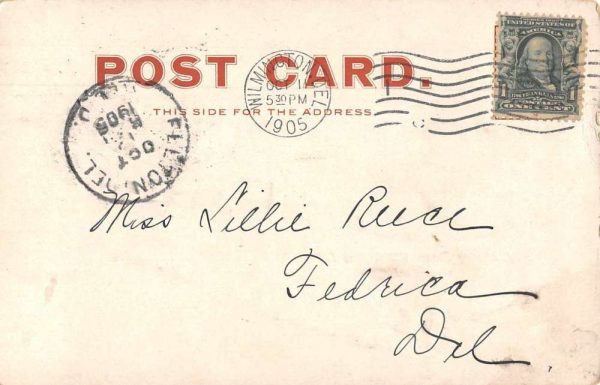 POST CARD.
THIS SIDE FOR THE ADDRESS
WILMINGTON, DEL.
OCT
5 30 PM
1905
UNITED STATES OF
AMERICA
1
ONE CENT
FELTON, DEL.
OCT
1905
Miss Lillie Reece
Fedrica
Del